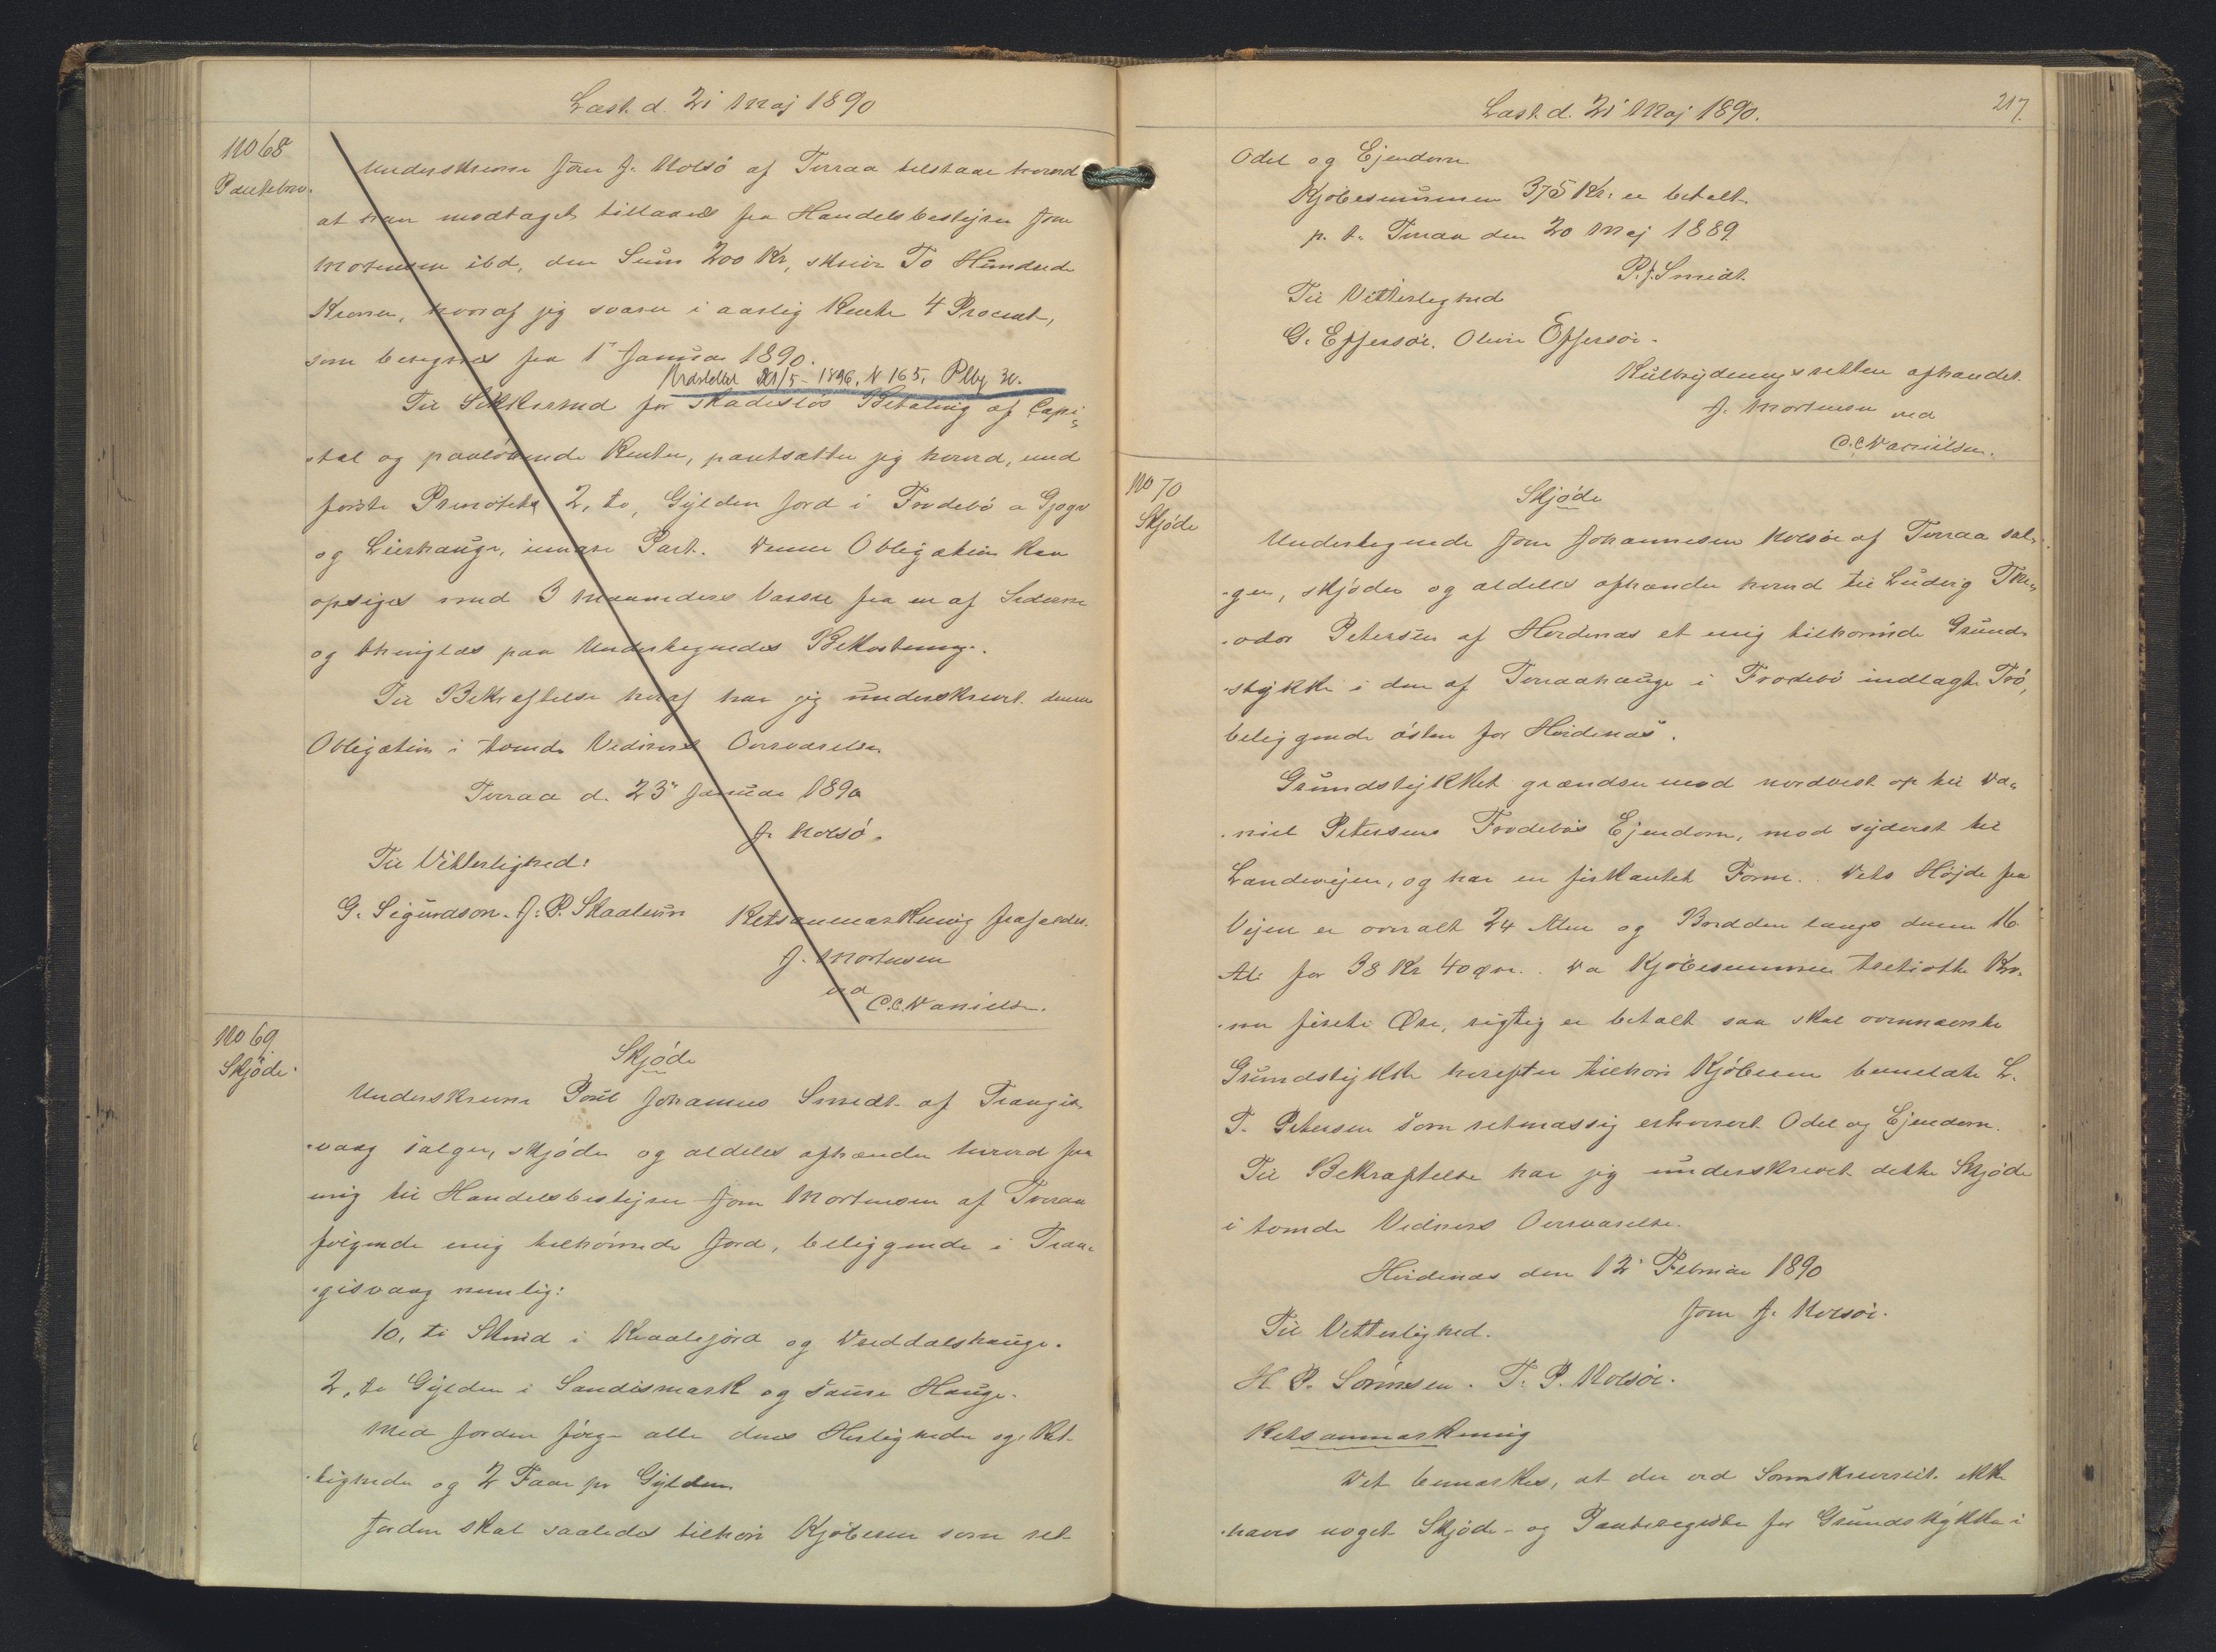 Læst d. 21 Maj 1890
No 68
Pantebrev.
Underskrevne Jörn J. Nolsö af Tveraa tilstaar herved
at have modtaget tillaans fra Handelsbestyrer Jörn
Mortensen ibd, den Sum 200 Kr, skriver To Hundrede
Kroner, hvoraf jeg svarer i aarlig Rente 4 Procent,
som beregnes fra 1 Januar 1890.
Udslettet 21/5-1896, N 165, Plbg 30.
Til Sikkerhed for skadeslös Betaling af Capi-
tal og paalöbende Renter, pantsætter jeg herved, med
förste Prioritet 2, to, Gylden Jord i Frodebö a Gjogv
og Lierhauge, innare Part. Denne Obligation kan
opsiges med 3 Maaneders Varsel fra en af Siderne
og thinglæses paa Undertegnedes Bekostning.
Til Bekræftelse heraf har jeg underskrevet denne
Obligation i tvende Vidners Overværelse
Tveraa d. 23 Januar 1890
J. Nolsö.
Til Vitterlighed:
G. Sigurdson. J. P. Skaalum
Retsanmærkning frafaldes.
J. Mortensen
ved
C. C. Danielsen.
No 69
Skjöde.
Skjöde
Underskrevne Poul Johannes Smidt af Trangis-
vaag sælger, skjöder og aldeles afhænder herved fra
mig til Handelsbestyrer Jörn Mortensen af Tveraa
følgende mig tilhörende Jord, beliggende i Tran-
gisvaag nemlig:
10, ti Skind i Kvalefjord og Oreddalshauge.
2, to Gylden i Sandismark og samme Hauge.
Med Jorden fölge alle dens Herligheder og Ret-
tigheder og 2 Faar pr Gylden
Jorden skal saaledes tilhöre Kjöberen som ret
Læst d. 21 Maj 1890.
217.
Odel og Ejendom
Kjöbesummen 375 Kr. er betalt.
p. t. Tveraa den 20 Maj 1889
P. J. Smidt.
Til Vitterlighed
G. Effersöe. Oliver Effersöe.
Retsydningsretten afhandet.
J. Mortensen ved
C. C. Danielsen.
No 70
Skjöde
Skjöde
Undertegnede Jörn Johannesen Nolsöe af Tveraa sæl-
ger, skjöder og aldeles afhænder herved til Ludvig The-
odor Petersen af Hvidenæs et mig tilhørende Grund-
stykke i den af Tveraahauge i Frodebö indlagte Trö,
beliggende östen for Hvidenæs.
Grundstykket grændser mod nordvest op til Da-
niel Petersens Frodebös Ejendom, mod sydvest til
Landevejen, og har en firkantet Form. Dets Højde fra
Vejen er overalt 24 Alen og Bredden langs denne 16
Al. for 38 Kr 40 øre. Da Kjöbesummen tretiotte Kro-
ner firti Øre, rigtig er betalt saa skal ovennævnte
Grundstykke herefter tilhöre Kjöberen bemeldte L.
T. Petersen som retmæssig erhvervet Odel og Ejendom.
Til Bekræftelse har jeg underskrevet dette Skjöde
i tvende Vidners Overværelse.
Hvidenæs den 12 Februar 1890
Jörn J. Nolsöe.
Til Vitterlighed.
H. P. Sörensen. T. P. Nolsöe.
Retsanmærkning
Det bemærkes, at der ved Sorenskriveriet ikke
haves noget Skjöde- og Panteregister for Grundstykke i